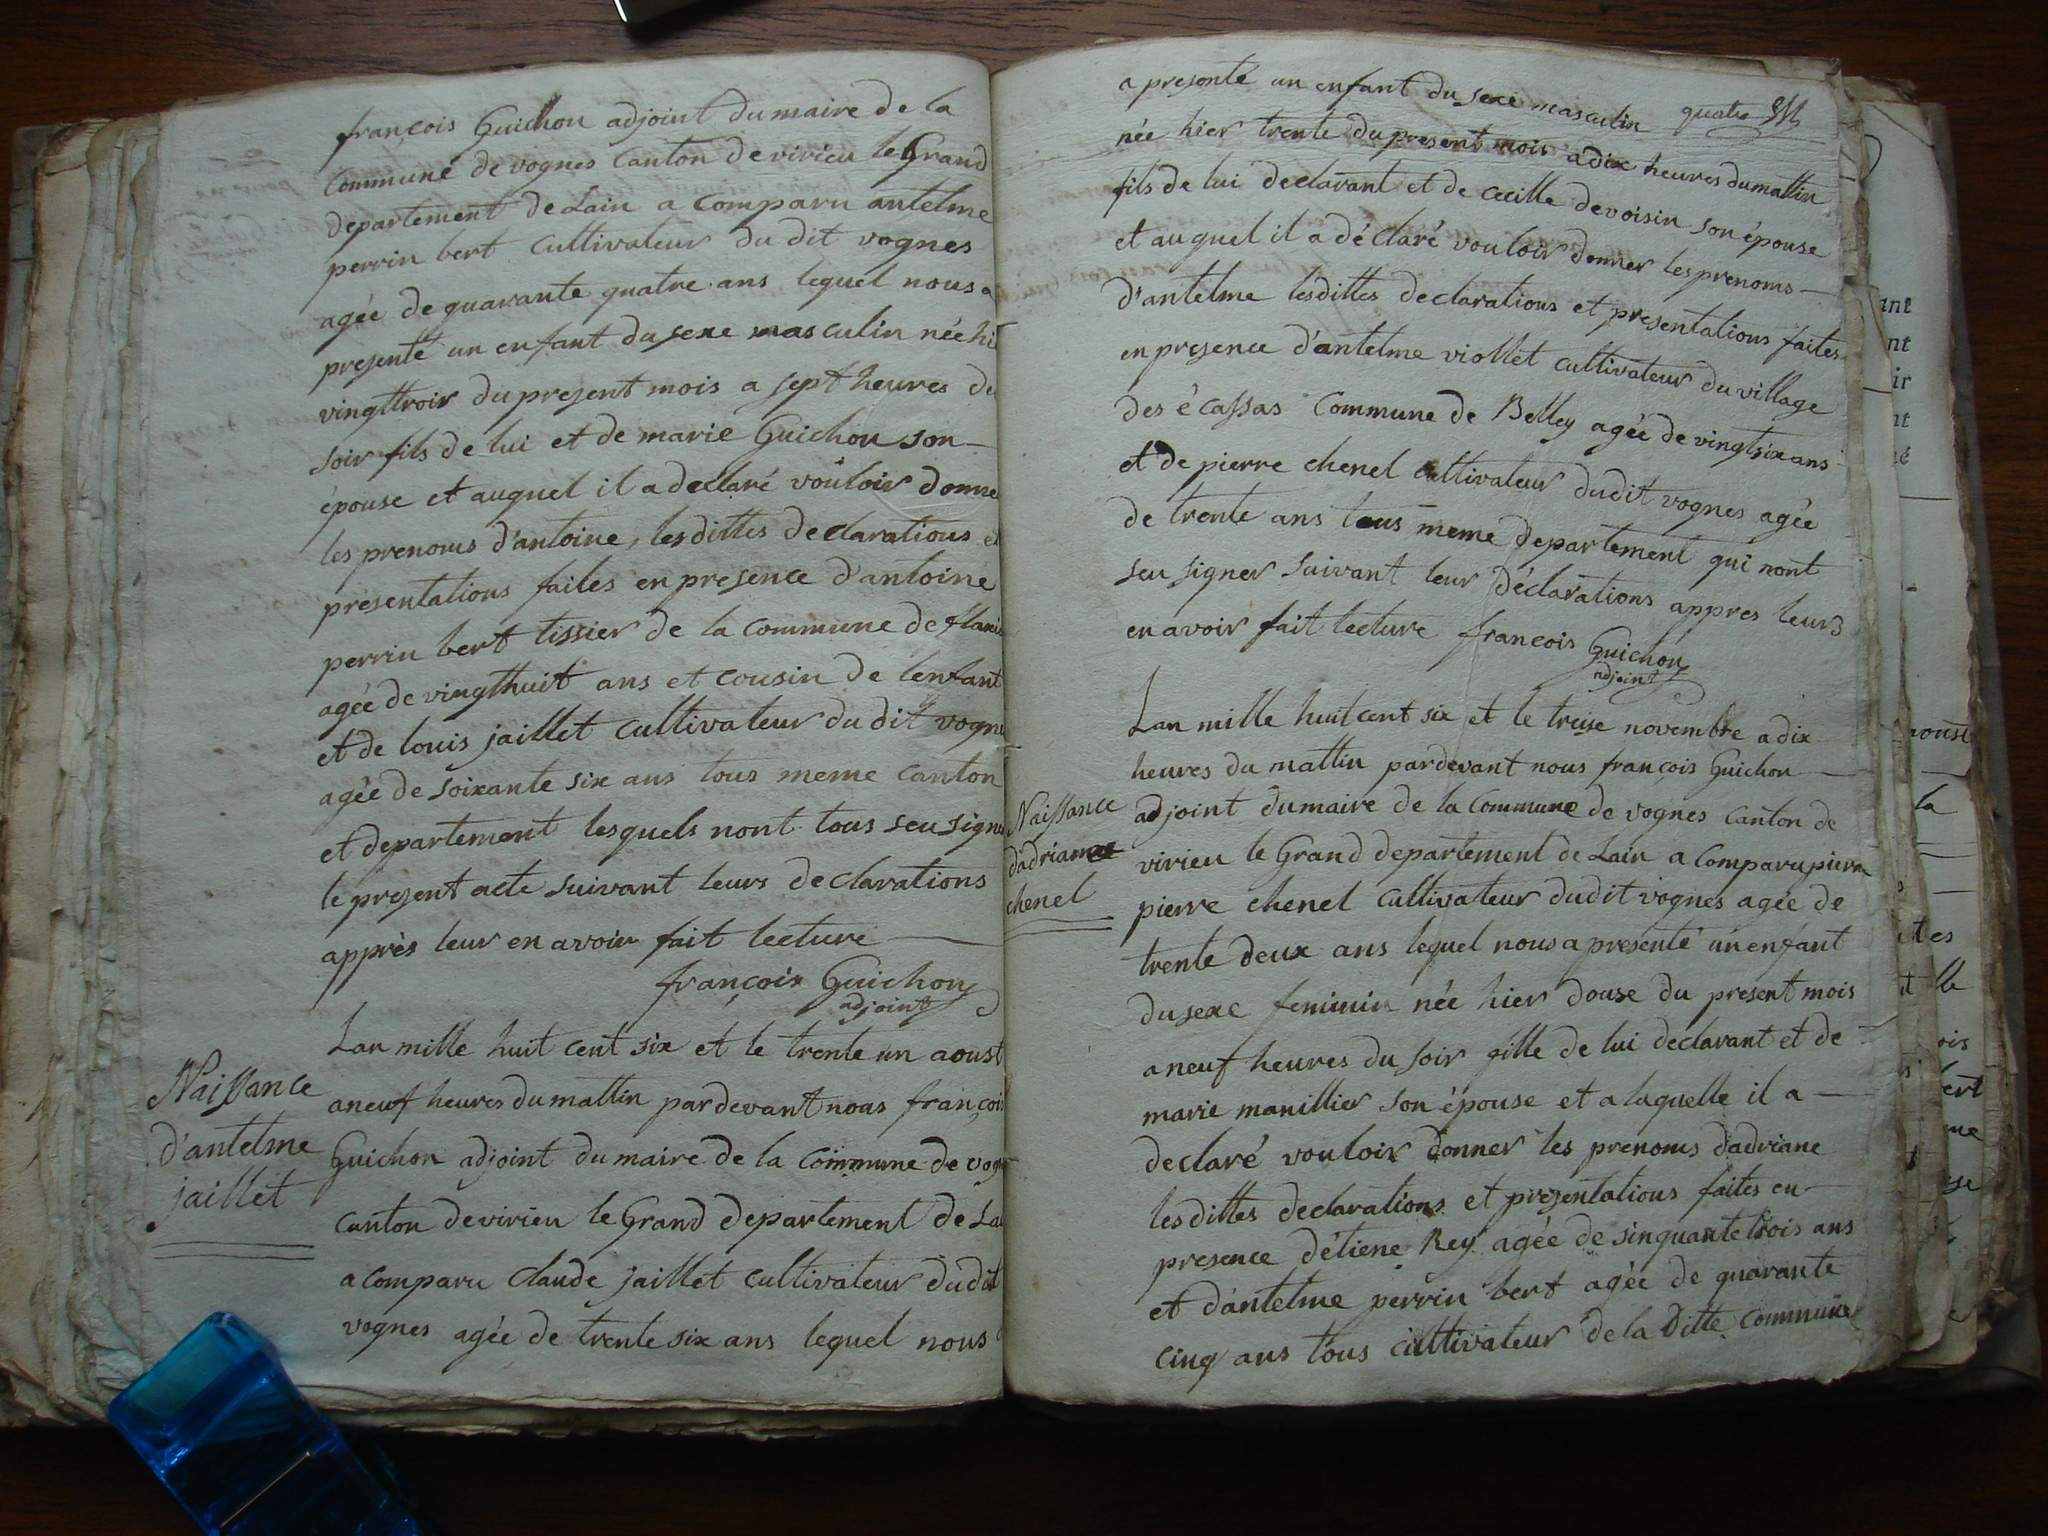 françois Guichon adjoint du maire de la
Commune de vognes Canton de virieu le Grand
departement de Lain a comparu antelme
perrin bert cultivateur du dit vognes
agée de quarante quatre ans lequel nous a
presenté un enfant du sexe masculin née hi
vingttrois du present mois a sept heures du
soir fils de lui et de marie Guichon son
épouse et auquel il a declaré vouloir donne
les prenoms d'antoine, les dittes declarations et
presentations faites en presence d'antoine
perrin bert tissier de la commune de
agée de vingthuit ans et cousin de lenfant
et de louis jaillet cultivateur du dit vogne
agée de soixante six ans tous meme canton
et departement lesquels nont tous seu signe
le present acte suivant leurs declarations
apprès leur en avoir fait lecture
françois Guichon
adjoint
Naissance
d'antelme
jaillet
Lan mille huit cent six et le trente un aoust
a neuf heures du mattin pardevant nous françois
Guichon adjoint du maire de la Commune de vogn
Canton de virieu le Grand departement de La
a comparu Claude jaillet cultivateur dudit
vognes agée de trente six ans lequel nous
quatre
a presonté un enfant du sexe masculin
née hier trente du present mois a dix heures du mattin
fils de lui declarant et de cecille devoisin son épouse
et auquel il a déclaré vouloir donner les prenoms
d'antelme lesdittes declarations et presentations faites
en presence d'antelme viollet cultivateur du village
des écassas Commune de Belley agée de vingtsix ans
et de pierre chenel cultivateur dudit vognes agée
de trente ans tous meme departement qui nont
seu signer suivant leur déclarations appres leurs
en avoir fait lecture francois Guichon
adjoint
Naissance
d'adrianne
chenel
Lan mille huit cent six et le treise novembre a dix
heures du mattin pardevant nous françois Guichon
adjoint du maire de la Commune de vognes Canton de
virieu le Grand departement de Lain a comparu pierre
pierre chenel cultivateur dudit vognes agée de
trente deux ans lequel nous a presenté un enfant
du sexe feminin née hier douse du present mois
a neuf heures du soir fille de lui declarant et de
marie manillier son épouse et a laquelle il a
declaré vouloir donner les prenoms d'adriane
lesdittes declarations et presentations faites en
presence d'étiene Rey agée de sinquante trois ans
et d'antelme perrin bert agée de quarante
cinq ans tous cultivateur de la ditte Commune